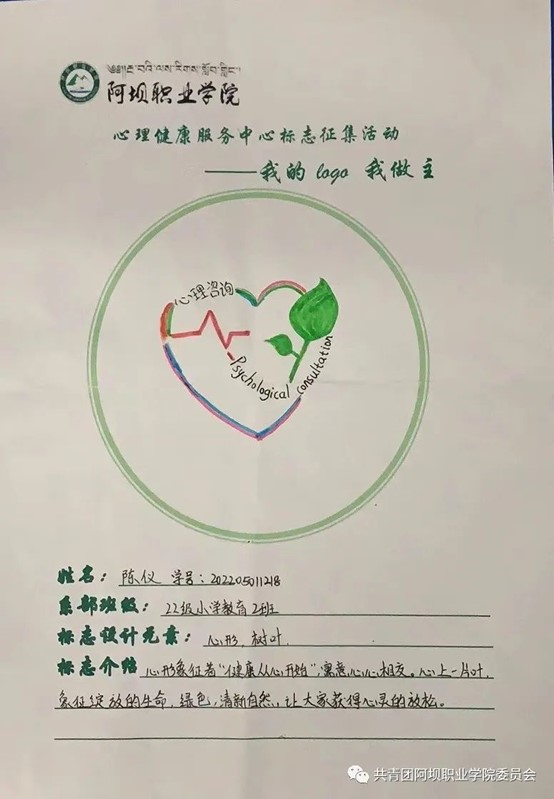 阿坝职业学院
心理健康服务中心标志征集活动
——我的 logo 我做主
心理咨询
Psychological consultation
姓名：陈仪 学号：202205011218
系部班级：22级小学教育2班
标志设计元素：心形，树叶
标志介绍 心形象征着“健康从心开始”，寓意心心相交。心上一片叶，
象征绽放的生命，绿色，清新自然，让大家获得心灵的放松。
共青团阿坝职业学院委员会